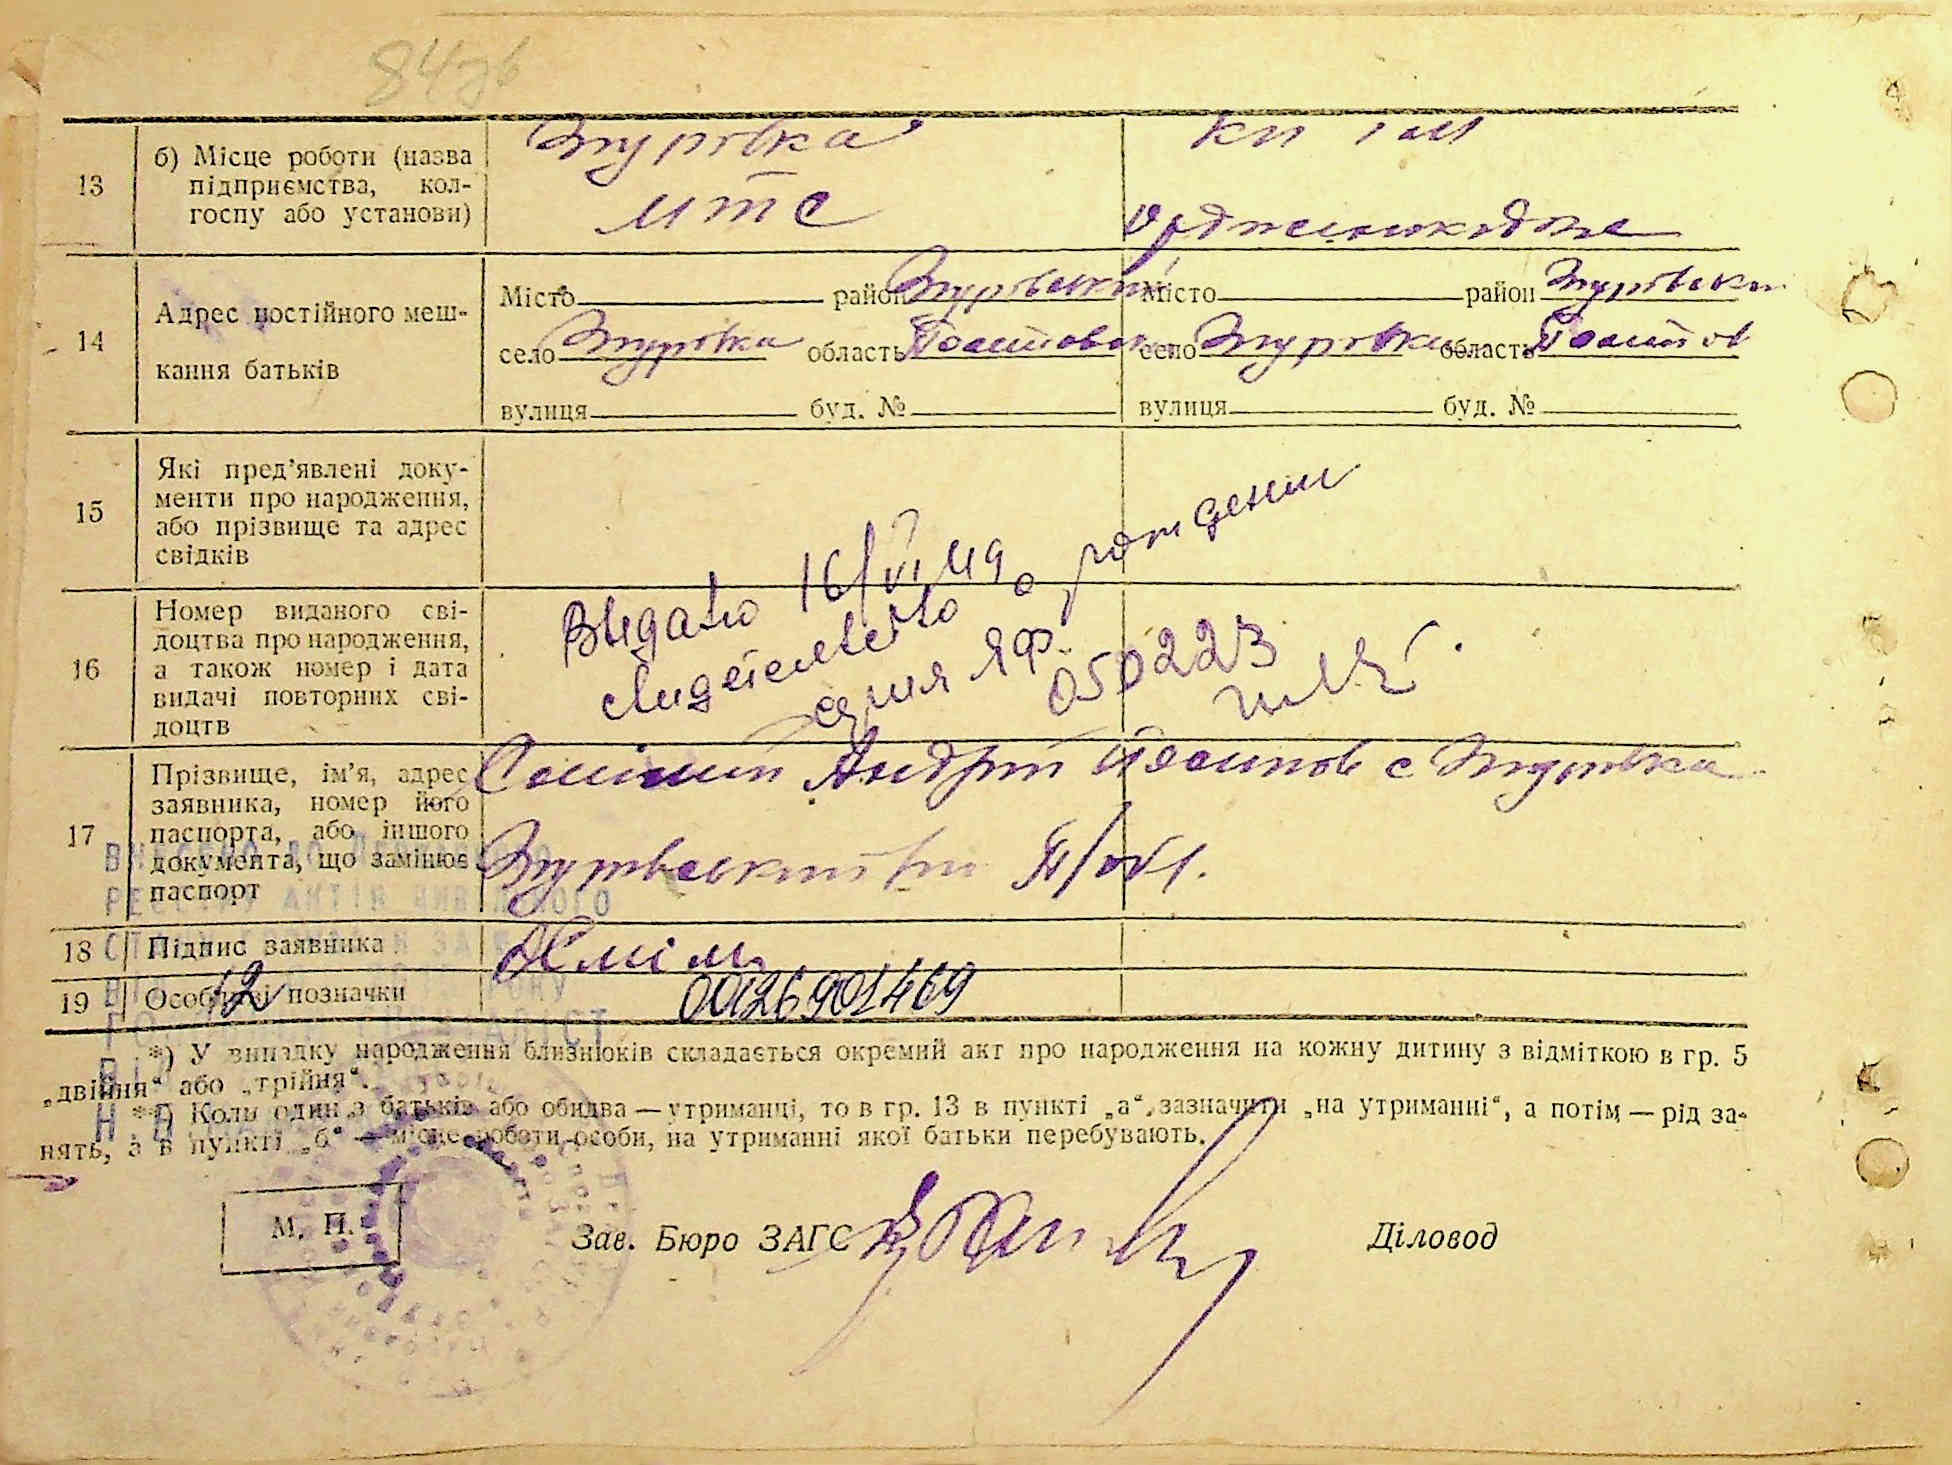 84зв
13
б) Місце роботи (назва
підприємства, кол-
госпу або установи)
Згурівка
МТС
к-п ім
Орджонікідзе
14
Адрес постійного меш-
кання батьків
Місто район Згурівський
село Згурівка область Полтавськ
вулиця буд. №
Місто район Згурівськи
село Згурівка область Полтав
вулиця буд. №
15
Які пред’явлені доку-
менти про народження,
або прізвище та адрес
свідків
16
Номер виданого сві-
доцтва про народження,
а також номер і дата
видачі повторних сві-
доцтв
Выдано 16/VI 49
свидетельство о рождении
серия ЯФ.
050223
17
Прізвище, ім’я, адрес
заявника, номер його
паспорта, або іншого
документа, що замінює
паспорт
Андрій с Згурівка
Згурівський р-н П/обл.
18
Підпис заявника
19
Особливі позначки
12
00126901469
*) У випадку народження близнюків складається окремий акт про народження на кожну дитину з відміткою в гр. 5
„двійня“ або „трійня“.
**) Коли один з батьків або обидва — утриманці, то в гр. 13 в пункті „а“ зазначити „на утриманні“, а потім — рід за-
нять, а в пункті „б“ — місце роботи особи, на утриманні якої батьки перебувають.
М. П.
Зав. Бюро ЗАГС
Діловод